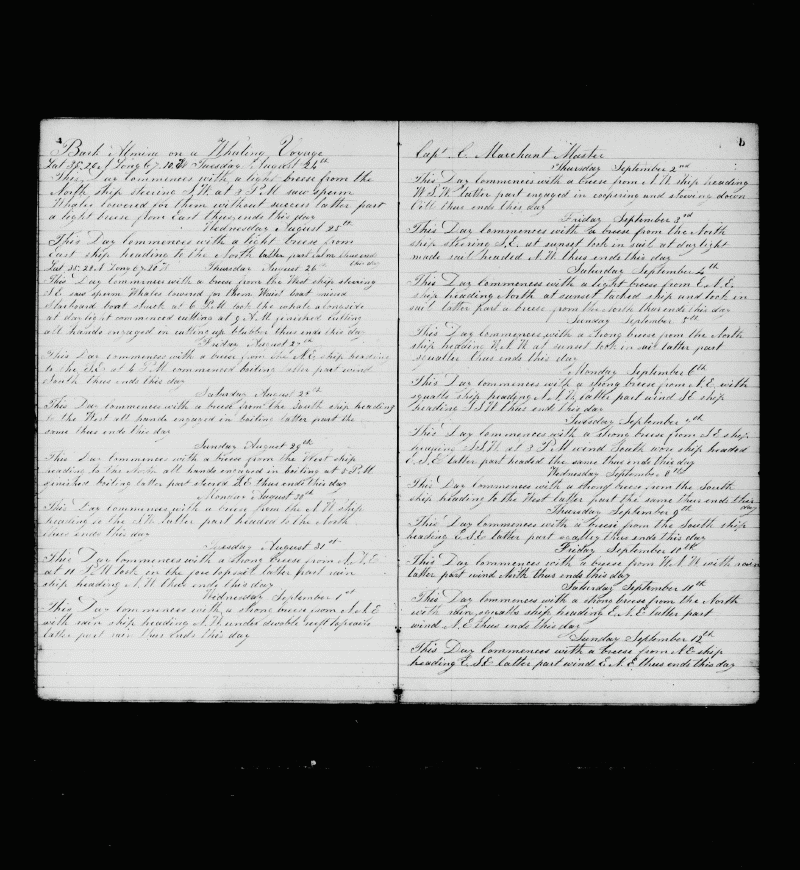 Bark Almira on a Whaling Voyage
Lat 35.20 N Long 67.10 W Tuesday August 24th
This Day Commences with a light breese from the
North ship steering S.W. at 3 P.M saw sperm
Whales lowered for them without success latter part
a light breese from East thus ends this day
Wednesday August 25th
This Day Commences with a light breese from
East ship heading to the North latter part calm thus ends
this day
Lat 35.20 N Long 67.20 W Thursday August 26
This Day Commences with a breese from the West ship steering
S.E. saw sperm Whales lowered for them Waist boat missed
Starboard boat struck at 6 P.M took the whale alongside
at daylight commenced cutting at 9 A.M finished cutting
all hands engaged in cutting up blubber thus ends this day
Friday August 27th
This Day commences with a breese from the N.E. ship heading
to the S.E. at 4 P.M. commenced boiling latter part wind
South thus ends this day
Saturday August 28th
This Day commences with a breese from the South ship heading
to the West all hands engaged in boiling latter part the
same thus ends this day
Sunday August 29th
This Day commences with a breese from the West ship
heading to the North all hands engaged in boiling at 8 P.M
finished boiling latter part steered S.E. thus ends this day
Monday August 30th
This Day commences with a breese from the N.W. ship
heading to the S.W. latter part headed to the North
thus ends this day
Tuesday August 31st
This Day commences with a strong breese from N.N.E
at 11 P.M took in the fore topsail latter part rain
ship heading N.W. thus ends this day
Wednesday September 1st
This Day commences with a strong breese from N.N.E
with rain ship heading N.W. under double reeft topsails
latter part rain thus ends this day
Capt C. Marchant Master
Thursday September 2nd
This Day Commences with a breese from N.W. ship heading
W.S.W. latter part engaged in coopering and stowing down
Oill thus ends this day
Friday September 3rd
This Day Commences with a breese from the North
ship steering S.E. at sunset took in sail at daylight
made sail headed N.W. thus ends this day
Saturday September 4th
This Day commences with a light breese from E.N.E.
ship heading North at sunset tacked ship and took in
sail latter part a breese from the north thus ends this day
Sunday September 5th
This Day Commences with a strong breese from the North
ship heading W.N.W. at sunset took in sail latter part
squally thus ends this day
Monday September 6th
This Day commences with a strong breese from N.E. with
squalls ship heading N.N.W. latter part wind S.E. ship
heading S.S.W. thus ends this day
Tuesday September 7th
This Day Commences with a strong breese from S.E. ship
heading S.S.W. at 3 P.M wind South wore ship headed
E.S.E. latter part headed the same thus ends this day
Wednesday September 8th
This Day Commences with a strong breese from the South
ship heading to the West latter part the same thus ends this
day
Thursday September 9th
This Day Commences with a breese from the South ship
heading E.S.E. latter part squally thus ends this day
Friday September 10th
This Day commences with a breese from W.N.W. with rain
latter part wind North thus ends this day
Saturday September 11th
This Day Commences with a strong breese from the North
with rain squalls ship heading E.N.E. latter part
wind N.E. thus ends this day
Sunday September 12th
This Day Commences with a breese from N.E. ship
heading E.S.E. latter part wind E.N.E. thus ends this day